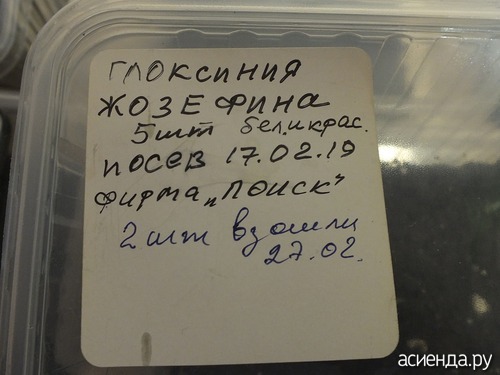 ГЛОКСИНИЯ
ЖОЗЕФИНА
5шт бел.икрас.
посев 17.02.19
фирма „Поиск"
2 шт взошли
27.02.
асиенда.ру